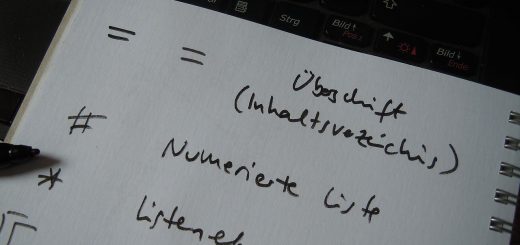 Strg
Bild↑
Pos1
Bild↓
Ende
= = Überschrift
(Inhaltsverzeichnis)
# Numerierte Liste
*